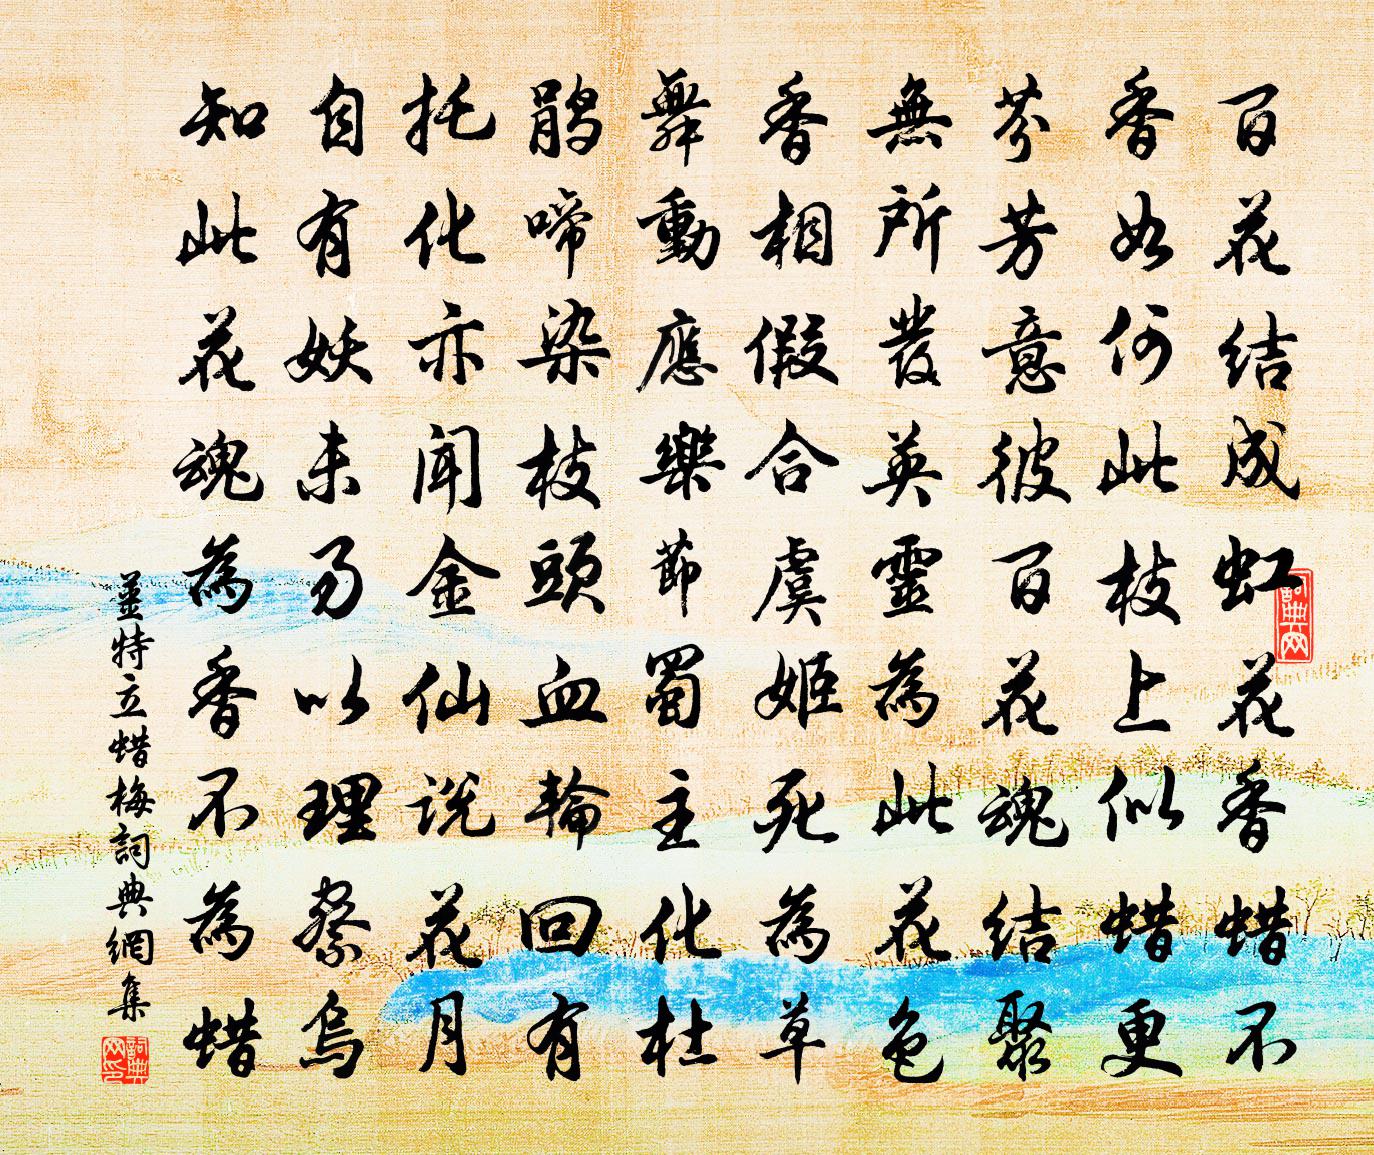 百花结成虹花香蜡不
香如何此枝上似蜡更
芬芳意彼百花魂结聚
無所發英靈為此花色
香相假合虞姬死為草
舞動應樂節蜀主化杜
鹃啼染枝頭血輪回有
托化亦闻金仙说花月
自有妖未易以理察烏
知此花魂為香不為蜡
薑特立蜡梅詞典網集
詞典网
詞典网印